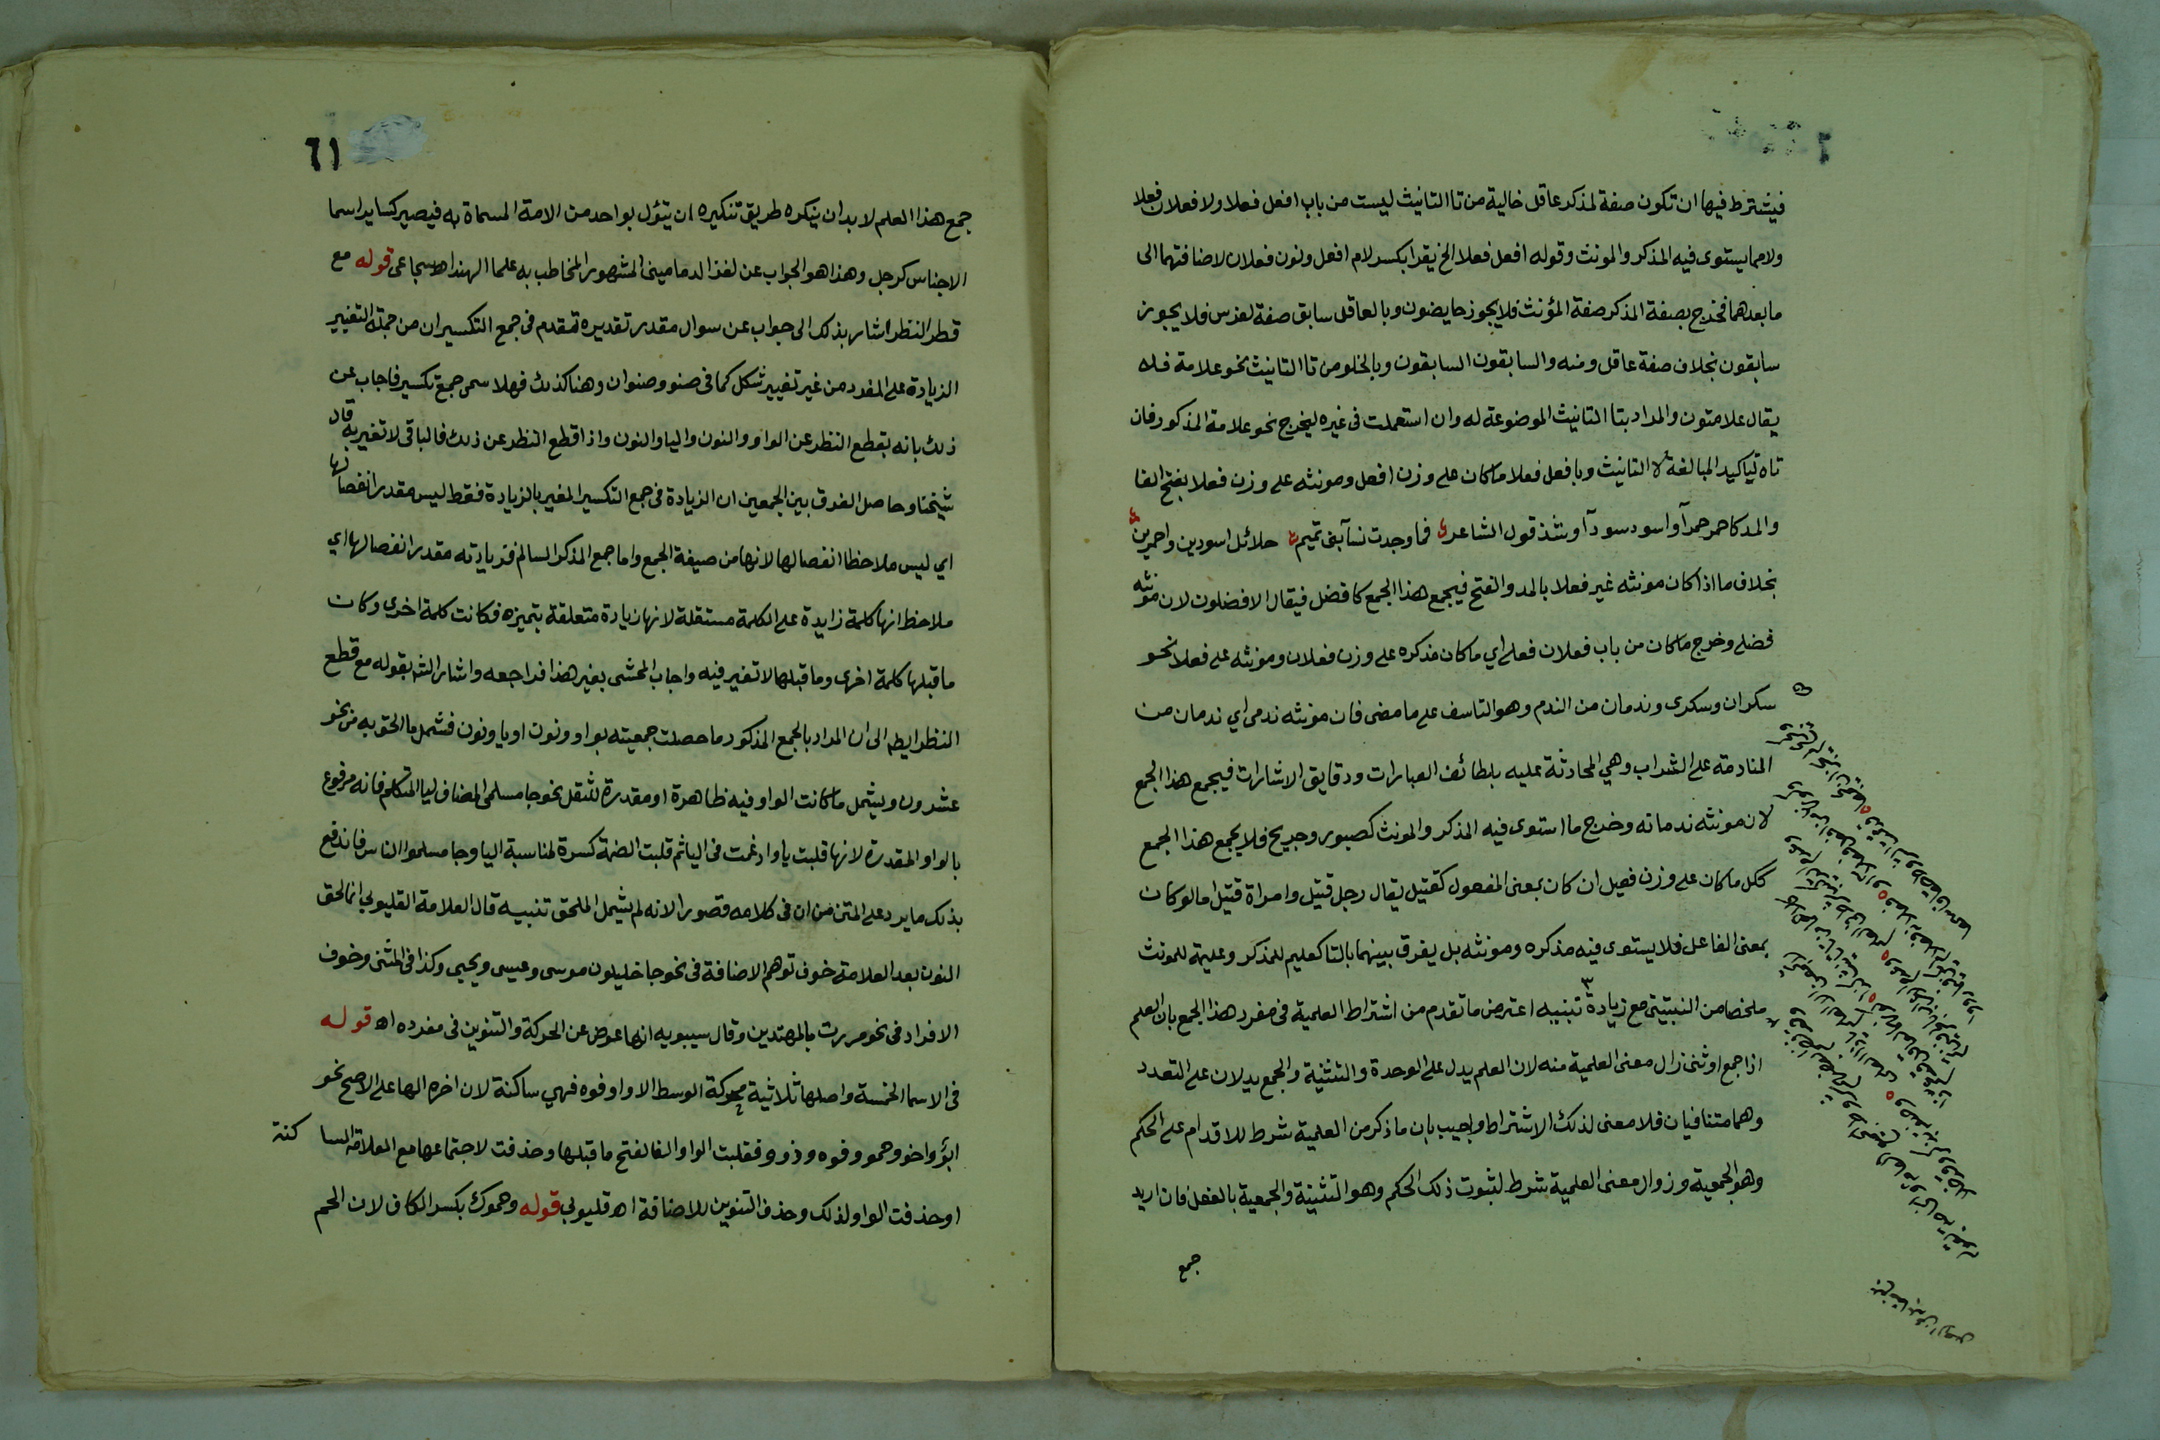 فيشترط فيها ان تكون صفة لمذكر عاقل خالية من تا التانيث ليست من باب افعل فعلا ولا فعلان فعلا
ولا مما يستوى فيه المذكر والمونث وقوله افعل فعلا الخ يقرا بكسر لام افعل ونون فعلان لاضافتهما الى
ما بعدهما فخرج بصفة المذكر صفة المؤنث فلا يجوز حايضون وبالعاقل سابق صفة لفرس فلا يجوز
سابقون بخلاف صفة عاقل ومنه والسابقون السابقون وبالخلو من تا التانيث نحو علامة فلا
يقال علامتون والمراد بتا التانيث الموضوعة له وان استعملت فى غيره ليخرج نحو علامة المذكور فان
تاه لتاكيد المبالغة لا التانيث وبافعل فعلا ما كان على وزن افعل ومونثه على وزن فعلا بفتح الفا
والمد كاحمر حمرآ واسود سودآ وشذ قول الشاعر فما وجدت نسآ بنى تميم حلائل اسودين واحمرين
بخلاف ما اذا كان مونثه غير فعلا بالمد والفتح فيجمع هذا الجمع كافضل فيقال الافضلون لان مونثه
فضلى وخرج ما كان من باب فعلان فعلى اي ما كان مذكره على وزن فعلان ومونثه على فعلا نحو
سكران وسكرى وندمان من الندم وهو التاسف على ما مضى فان مونثه ندمى اي ندمان من
المنادمة على الشراب وهي المحادثة عليه بلطائف العبارات ودقايق الاشارات فيجمع هذا الجمع
لان مونثه ندمانه وخرج ما استوى فيه المذكر والمونث كصبور وجريح فلا يجمع هذا الجمع
ككل ما كان على وزن فعيل ان كان بمعنى المفعول كقتيل يقال رجل قتيل وامراة قتيل اما لو كان
بمعنى الفاعل فلا يستوى فيه مذكره ومونثه بل يفرق بينهما بالتا كعليم للمذكر وعليمة للمونث
ملخصا من النبتيتى مع زيادة تنبيه اعترض ما تقدم من اشتراط العلمية فى مفرد هذا الجمع بان العلم
اذا جمع او ثنى زال معنى العلمية منه لان العلم يدل على الوحدة والتثنية والجمع يدلان على التعدد
وهما متنافيان فلا معنى لذلك الاشتراط واجيب بان ما ذكر من العلمية شرط للاقدام على الحكم
وهو الجمعية وزوال معنى العلمية شرط لثبوت ذلك الحكم وهو التثنية والجمعية بالفعل فان اريد
جمع
٦١
جمع هذا العلم لا بد ان ينكره طريق تنكيره ان يتؤل بواحد من الامة المسماة به فيصير كساير اسما
الاجناس كرجل وهذا هو الجواب عن لغز الدمامينى المشهور المخاطب به علما الهند اه سجاعى قوله مع
قطر النظر اشار بذلك الى جواب عن سوال مقدر تقديره تقدم فى جمع التكسير ان من جملة التغيير
الزيادة على المفرد من غير تغيير شكل كما فى صنو وصنوان وهنا كذلك فهلا سمى جمع تكسير فاجاب عن
ذلك بانه بقطع النظر عن الواو والنون واليا والنون واذا قطع النظر عن ذلك فالباقى لا تغير به قال
شيخنا وحاصل الفرق بين الجمعين ان الزيادة فى جمع التكسير المغير بالزيادة فقط ليس مقدرا انفصالها
اي ليس ملاحظا انفصالها لانها من صيغة الجمع واما جمع المذكر السالم فزيادته مقدر انفصالها اي
ملاحظ انها كلمة زايدة على الكلمة مستقلة لانها زيادة متعلقة بتميزه فكانت كلمة اخرى وكان
ما قبلها كلمة اخرى وما قبلها لا تغير فيه واجاب المحشى بغير هذا فراجعه واشار الشم بقوله مع قطع
النظر ايطه الى ان المراد بالجمع المذكور ما حصلت جمعيته بواو ونون او يا ونون فشمل ما الحق به من نحو
عشرون ويشمل ما كانت الواو فيه ظاهرة او مقدرة للثقل نحو جا مسلمى المضاف ليا المتكلم فانه مرفوع
بالواو المقدرة لانها قلبت يا وادغمت فى اليا ثم قلبت الضمة كسرة لمناسبة اليا وجا مسلموا الناس فاندفع
بذلك ما يرد على المتن من ان فى كلامه قصورا لانه لم يشمل الملحق تنبيه قال العلامة القليوبي انما لحق
النون بعد العلامة خوف توهم الاضافة فى نحو جا خليلون موسى وعيسى ويحيى وكذا فى المثنى وخوف
الافراد فى نحو مررت بالمهتدين وقال سيبويه انها عوض عن الحركة والتنوين فى مفرده اه قوله
فى الاسما الخمسة واصلها ثلاثية محركة الوسط الا واو فوه فهي ساكنة لان اخره الها على الاصح نحو
ابؤ واخو وحمو وفوه وذوو فقلبت الواو الفا لفتح ما قبلها وحذفت لاجتماعها مع العلاقة السا كنة
او حذفت الواو لذلك وحذف التنوين للاضافة اه قليوبي قوله وهموك بكسر الكاف لان الحم